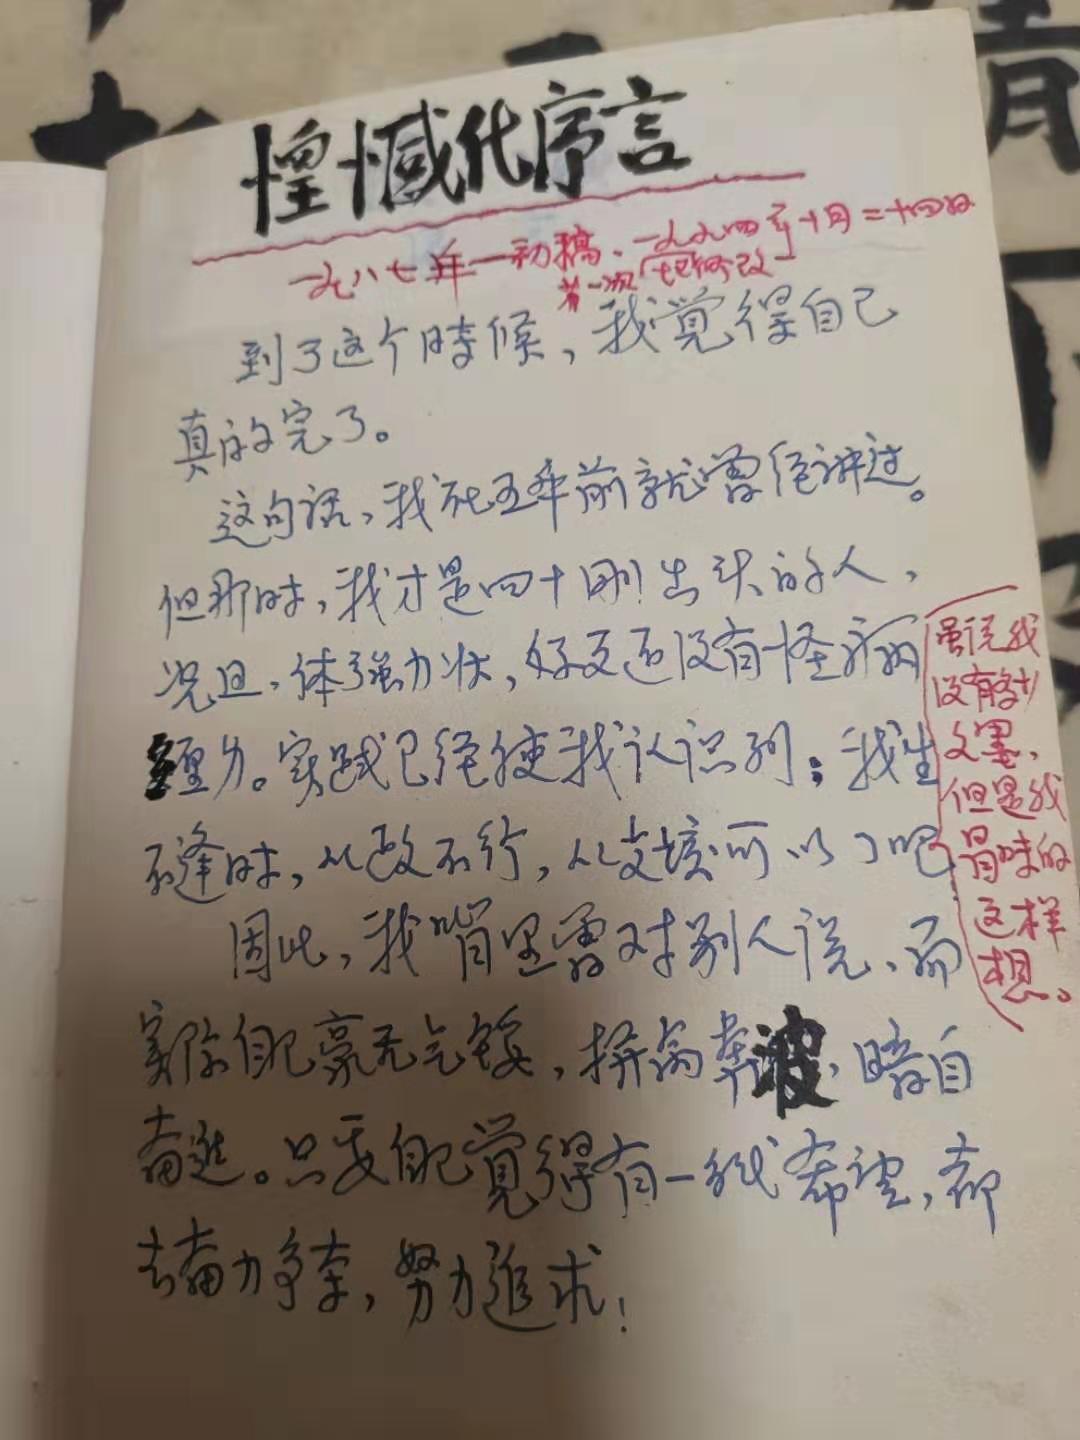 惶憾代序言
一九八七年一初稿、一九九四年十月二十四日
第一次
修改
到了这个時候，我覚得自己
真的完了。
这句话，我在五年前就曾经讲过。
但那时，我才是四十刚出头的人，
况且，体强力状，好歹还没有怪病
身。实践已经使我认识到：我生
不逢时，从政不行，从文该可以了吧
虽说我
没有多少
文墨，
但是我
冒昧的
这样
想。
因此，我嘴里虽对别人说，而
实际自己豪无气馁，拼高奔波，暗自
奋进。只要自己覚得有一线希望，都
去奋力争素，努力追求！